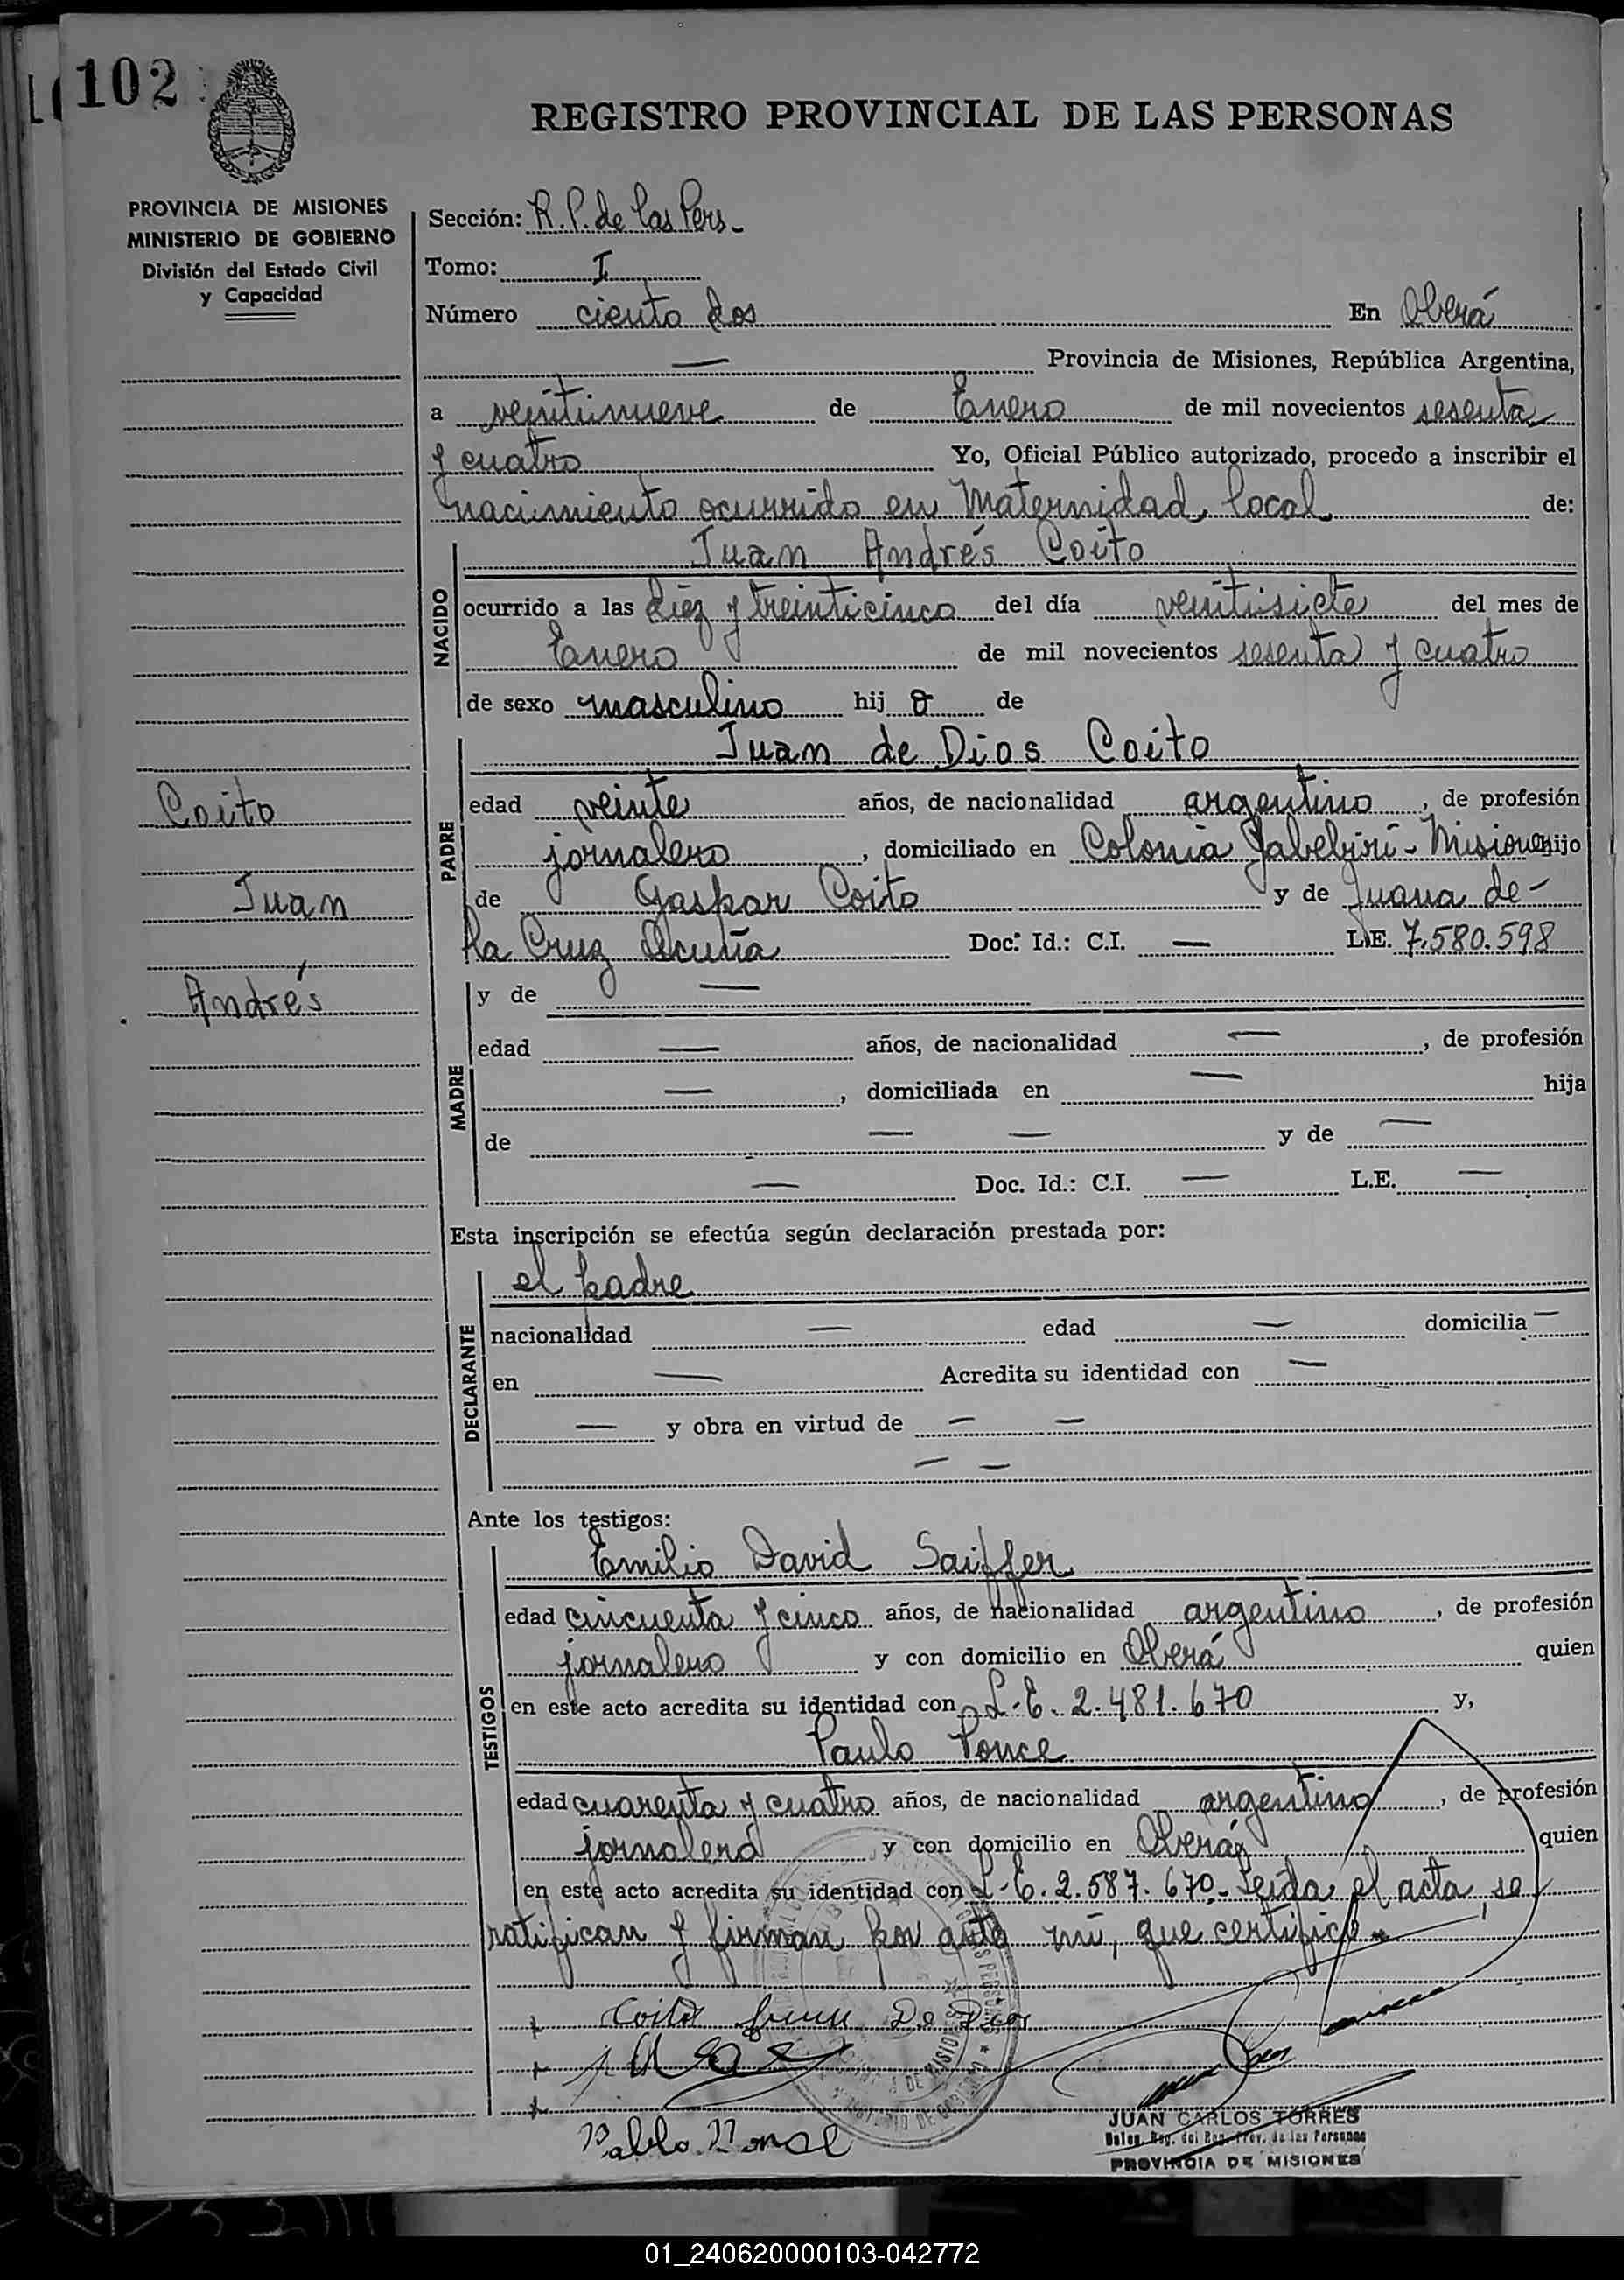 102
REGISTRO PROVINCIAL DE LAS PERSONAS
PROVINCIA DE MISIONES
MINISTERIO DE GOBIERNO
División del Estado Civil
y Capacidad
Sección: R. P. de las Pers.-
Tomo: I
Número ciento dos En Oberá
— Provincia de Misiones, República Argentina,
a veintinueve de Enero de mil novecientos sesenta
y cuatro Yo, Oficial Público autorizado, procedo a inscribir el
nacimiento ocurrido en Maternidad local de:
NACIDO
Juan Andrés Coito
ocurrido a las diez y treinticinco del día veintisiete del mes de
Enero de mil novecientos sesenta y cuatro
de sexo masculino hijo de
PADRE
Juan de Dios Coito
edad veinte años, de nacionalidad argentino, de profesión
jornalero, domiciliado en Colonia Yabebirí - Misiones hijo
de Gaspar Coito y de Juana de-
la Cruz Acuña Doc. Id.: C.I. — L.E. 7.580.598
Coito
Juan
Andrés
MADRE
y de —
edad — años, de nacionalidad —, de profesión
—, domiciliada en — hija
de — — y de —
— Doc. Id.: C.I. — L.E. —
Esta inscripción se efectúa según declaración prestada por:
DECLARANTE
el padre
nacionalidad — edad — domicilia —
en — Acredita su identidad con —
— y obra en virtud de — —
— —
Ante los testigos:
TESTIGOS
Emilio David Saiffer
edad cincuenta y cinco años, de nacionalidad argentino, de profesión
jornalero y con domicilio en Oberá quien
en este acto acredita su identidad con L.E. 2.481.670 y,
Paulo Ponce
edad cuarenta y cuatro años, de nacionalidad argentino, de profesión
jornalero y con domicilio en Oberá quien
en este acto acredita su identidad con L.E. 2.587.670.- Leída el acta, se
ratifican y firman por ante mí, que certifico.-
Coito Juan De Dios
JUAN CARLOS TORRES
Deleg. Reg. del Reg. Prov. de las Personas
PROVINCIA DE MISIONES
Pablo
01_240620000103-042772